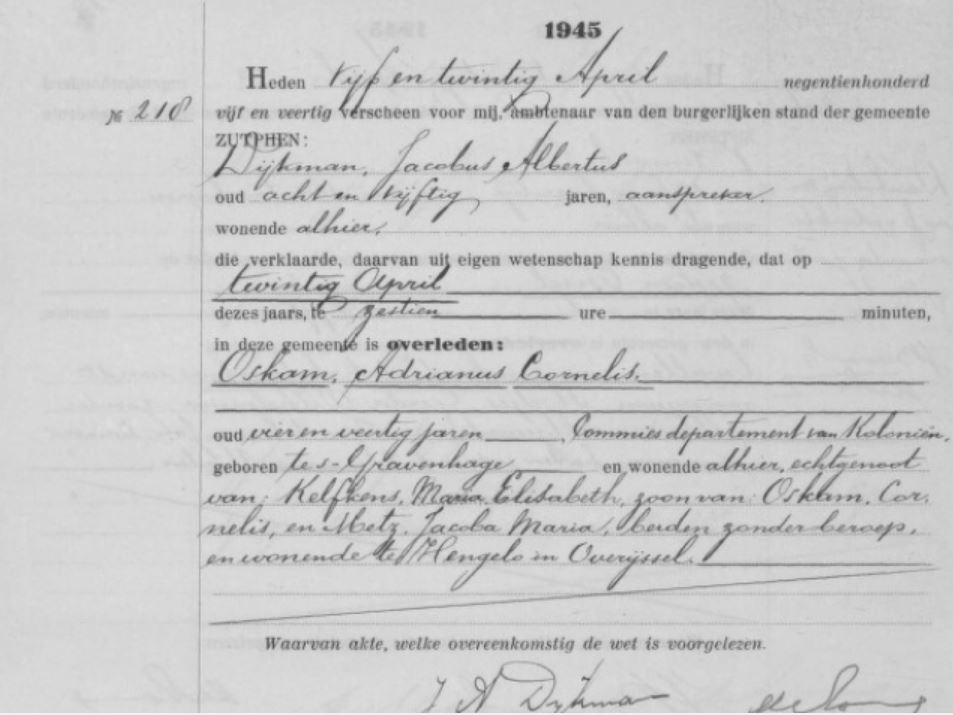 1945
Heden vijf en twintig April negentienhonderd
№ 218 vijf en veertig verscheen voor mij, ambtenaar van den burgerlijken stand der gemeente
ZUTPHEN:
Dijkman, Jacobus Albertus
oud acht en vijftig jaren, aanspreker.
wonende alhier,
die verklaarde, daarvan uit eigen wetenschap kennis dragende, dat op
twintig April
dezes jaars, te zestien ure minuten,
in deze gemeente is overleden:
Oskam, Adrianus Cornelis.
oud vier en veertig jaren, Commies departement van Koloniën,
geboren te s-Gravenhage en wonende alhier, echtgenoot
van: Kelfkens, Maria Elisabeth, zoon van: Oskam, Cor-
nelis, en Metz, Jacoba Maria, beiden zonder beroep,
en wonende te Hengelo in Overijssel.
Waarvan akte, welke overeenkomstig de wet is voorgelezen.
J A Dijkman